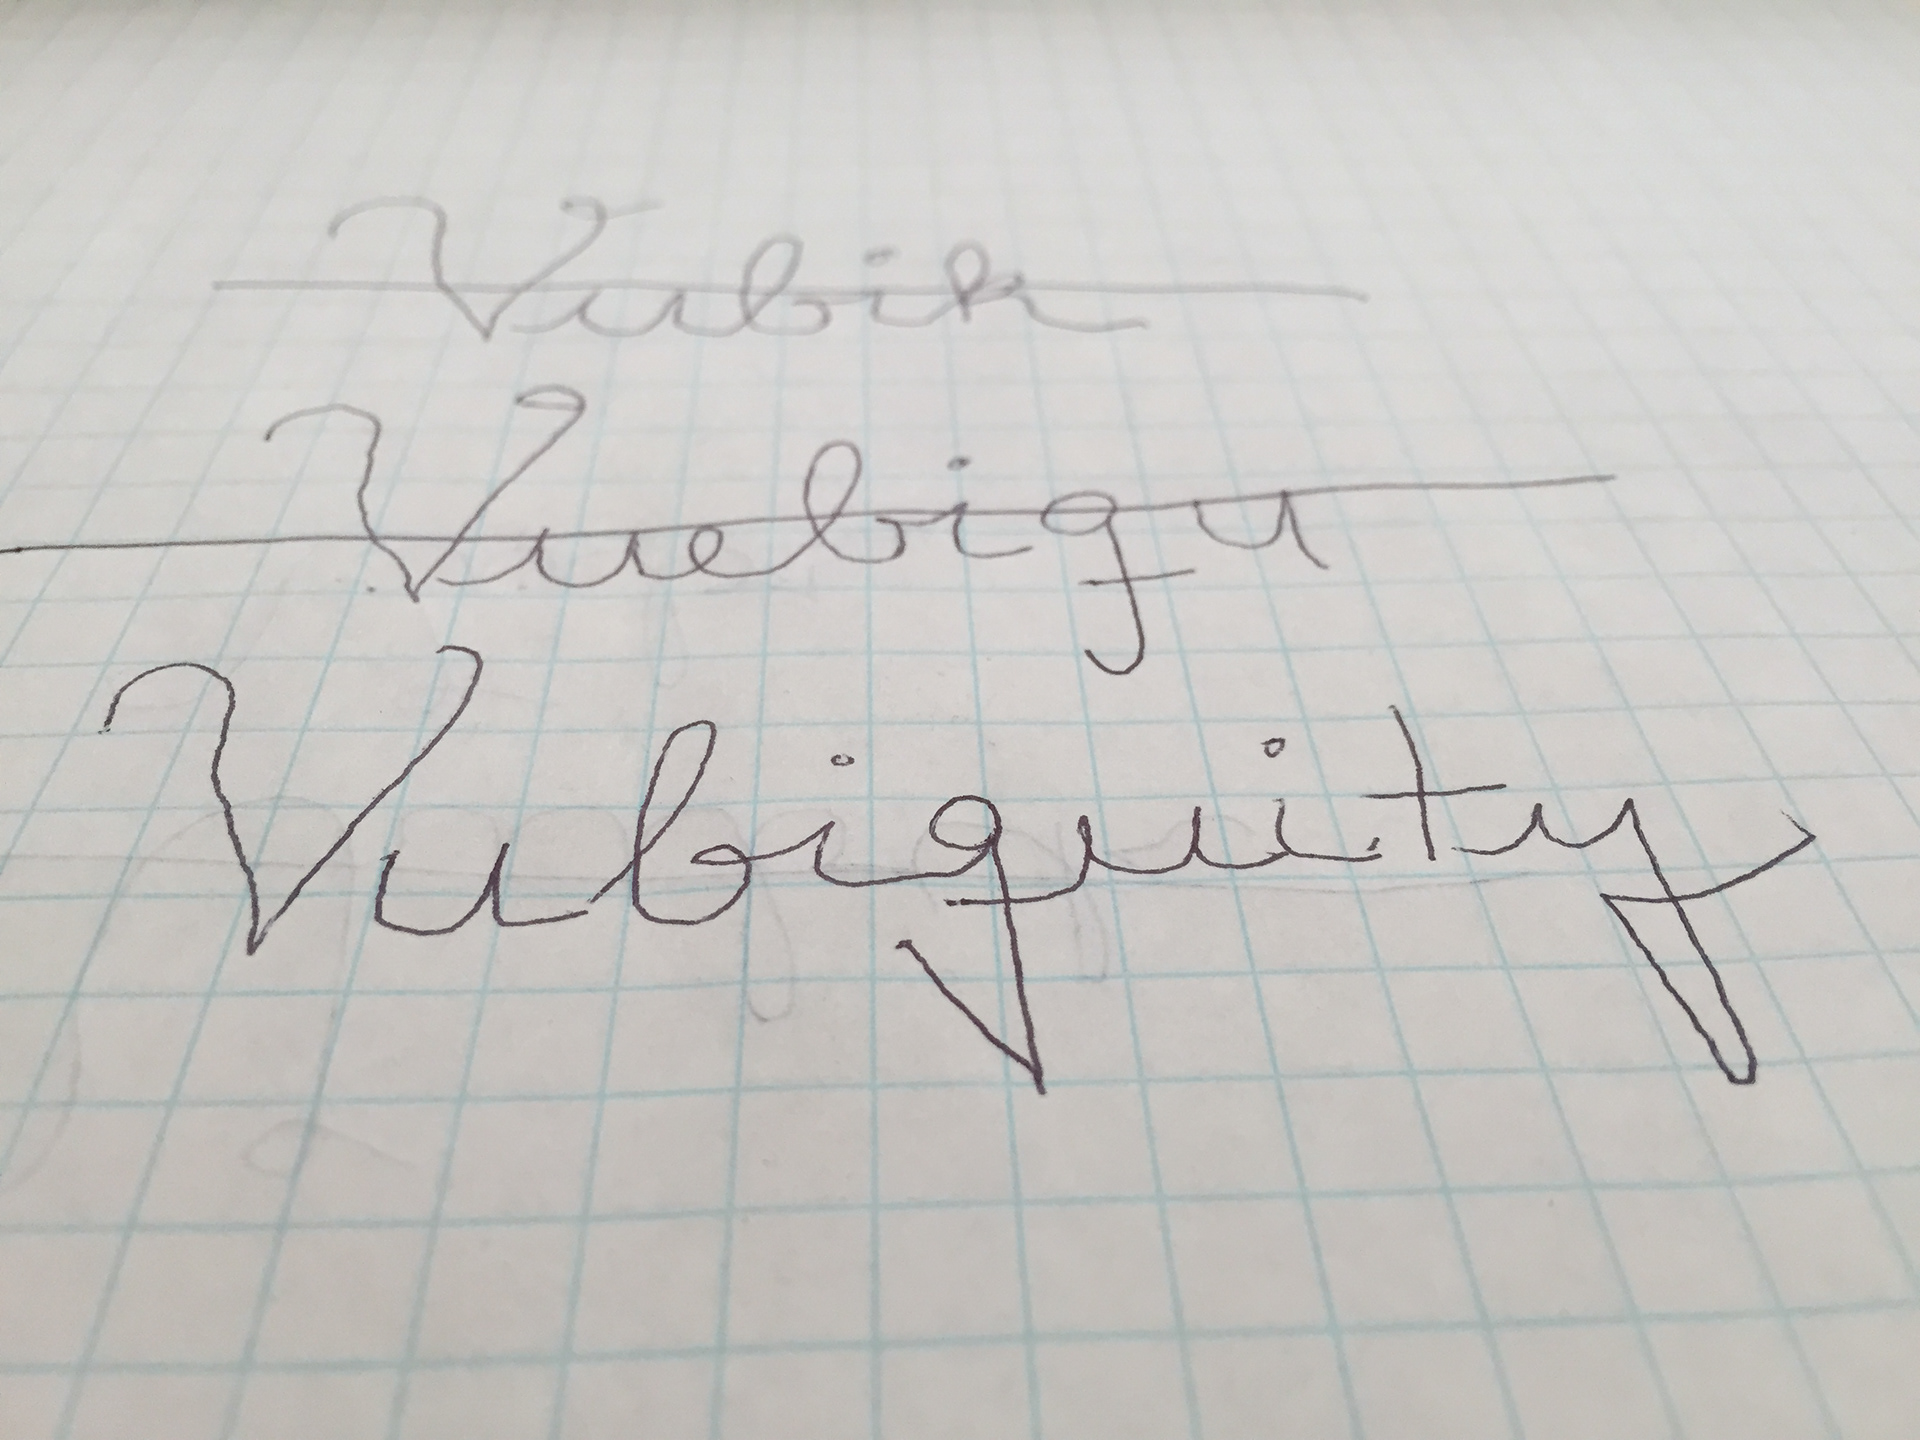 Vubik
Vuebiqu
Vubiquity